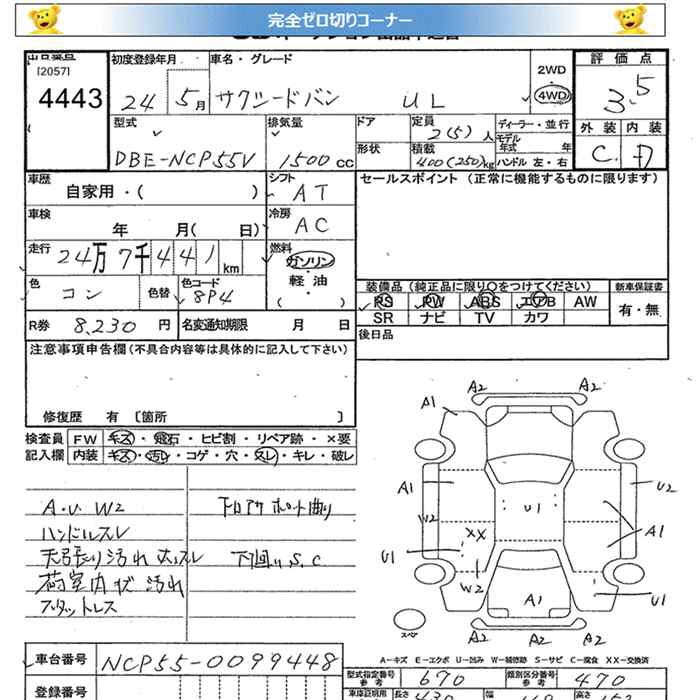 完全ゼロ切りコーナー
[2057]
4443
初度登録年月
24 5月
車名・グレード
サクシードバン UL
2WD
・
4WD
評価点
3.5
外装 内装
C D
型式
DBE-NCP55V
排気量
1500 CC
ドア
形状
定員
2(5)人
積載
400(250)kg
ディーラー・並行
モデル
年式 年
ハンドル 左・右
車歴
自家用・( )
シフト
AT
車検
年 月( 日)
冷房
AC
走行
24万7千441km
燃料
ガソリン
・
軽油
( )
色
コン
色替
色コード
8P4
R券 8,230 円
名変通知期限 月 日
セールスポイント (正常に機能するものに限ります)
装備品(純正品に限り○をつけてください)
PS PW ABS エアB AW
SR ナビ TV カワ
新車保証書
有・無
後日品
注意事項申告欄(不具合内容等は具体的に記入して下さい)
修復歴 有 〔箇所 〕
検査員
記入欄
FW キズ・飛石・ヒビ割・リペア跡・×要
内装 キズ・汚レ・コゲ・穴・スレ・キレ・破レ
A・U W2
ハンドルスレ
天張り汚れ
荷室内 汚れ
下回りS.C
A2 A2
A1
A1
W2
U1
XX
W2
U1
U2
A1
U1
A1
A2 A2
スペア
A-キズ E-エクボ U-凹み W-補修跡 S-サビ C-腐食 XX-交換済
車台番号 NCP55-0099448
登録番号
型式指定番号
参考
670
類別区分番号
参考
470
長さ 幅 高さ